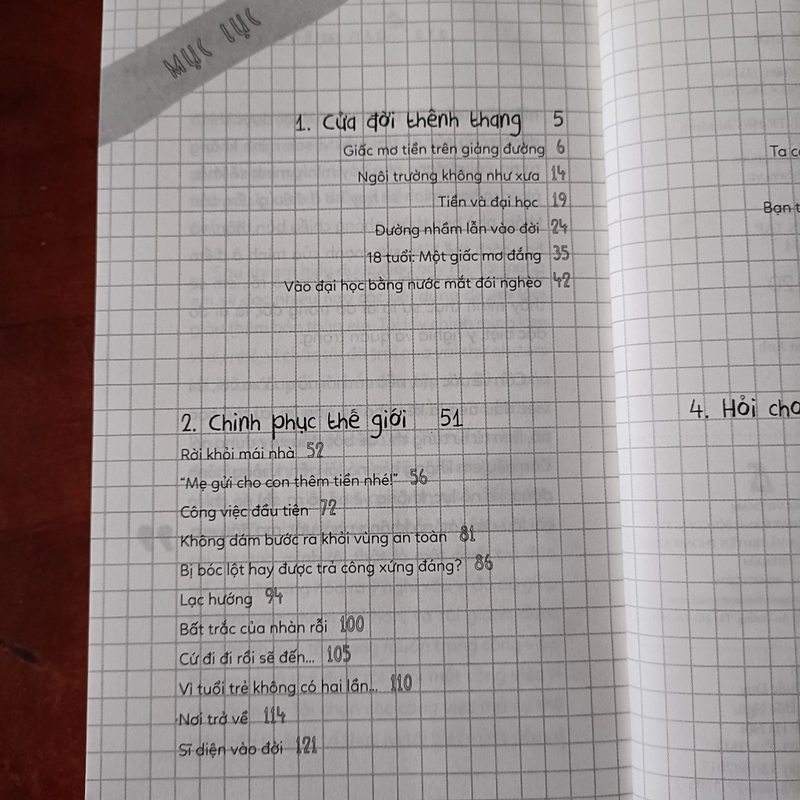 MỤC LỤC
1. Cửa đời thênh thang 5
Giấc mơ tiền trên giảng đường 6
Ngôi trường không như xưa 14
Tiền và đại học 19
Đường nhầm lẫn vào đời 24
18 tuổi: Một giấc mơ đắng 35
Vào đại học bằng nước mắt đói nghèo 42
2. Chinh phục thế giới 51
Rời khỏi mái nhà 52
"Mẹ gửi cho con thêm tiền nhé!" 56
Công việc đầu tiên 72
Không dám bước ra khỏi vùng an toàn 81
Bị bóc lột hay được trả công xứng đáng? 86
Lạc hướng 94
Bất trắc của nhàn rỗi 100
Cứ đi đi rồi sẽ đến... 105
Vì tuổi trẻ không có hai lần... 110
Nơi trở về 114
Sĩ diện vào đời 121
Ta
Bạn
4. Hỏi